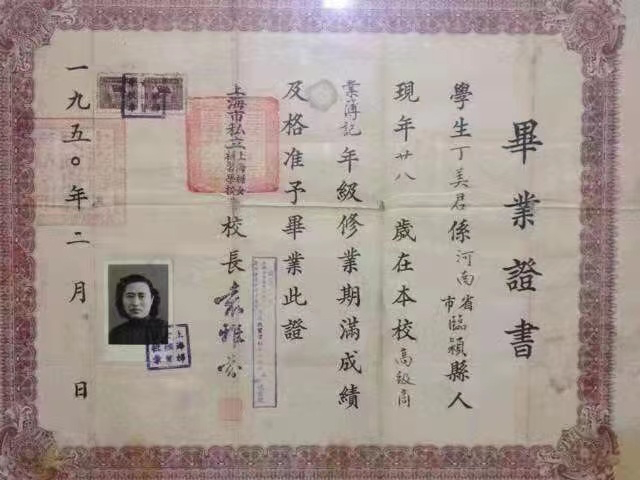 畢業證書
學生丁美君係河南省市臨潁縣人
現年廿八歲在本校高級商
業簿記年級修業期滿成績
及格准予畢業此證
上海市私立上海婦女補習學校校長袁雅芬
一九五〇年二月日